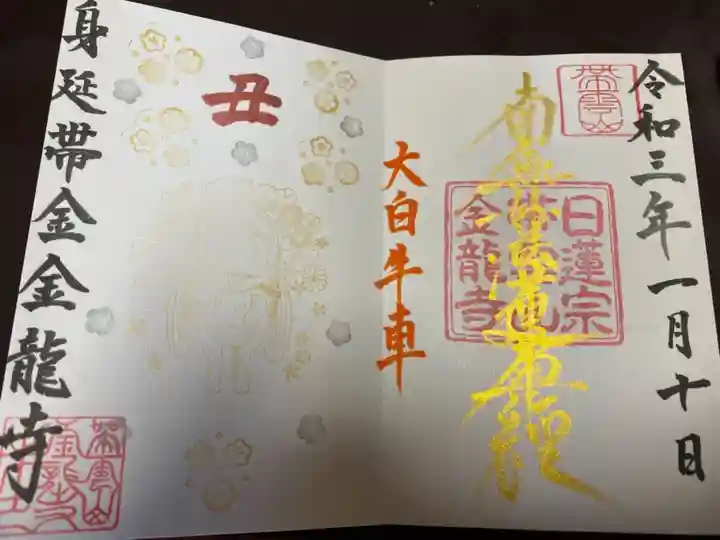 令和三年一月十日
帯雲山
南無妙法蓮華経
日蓮宗
帯雲山
金龍寺
大白牛車
丑
身延帯金金龍寺
帯雲山